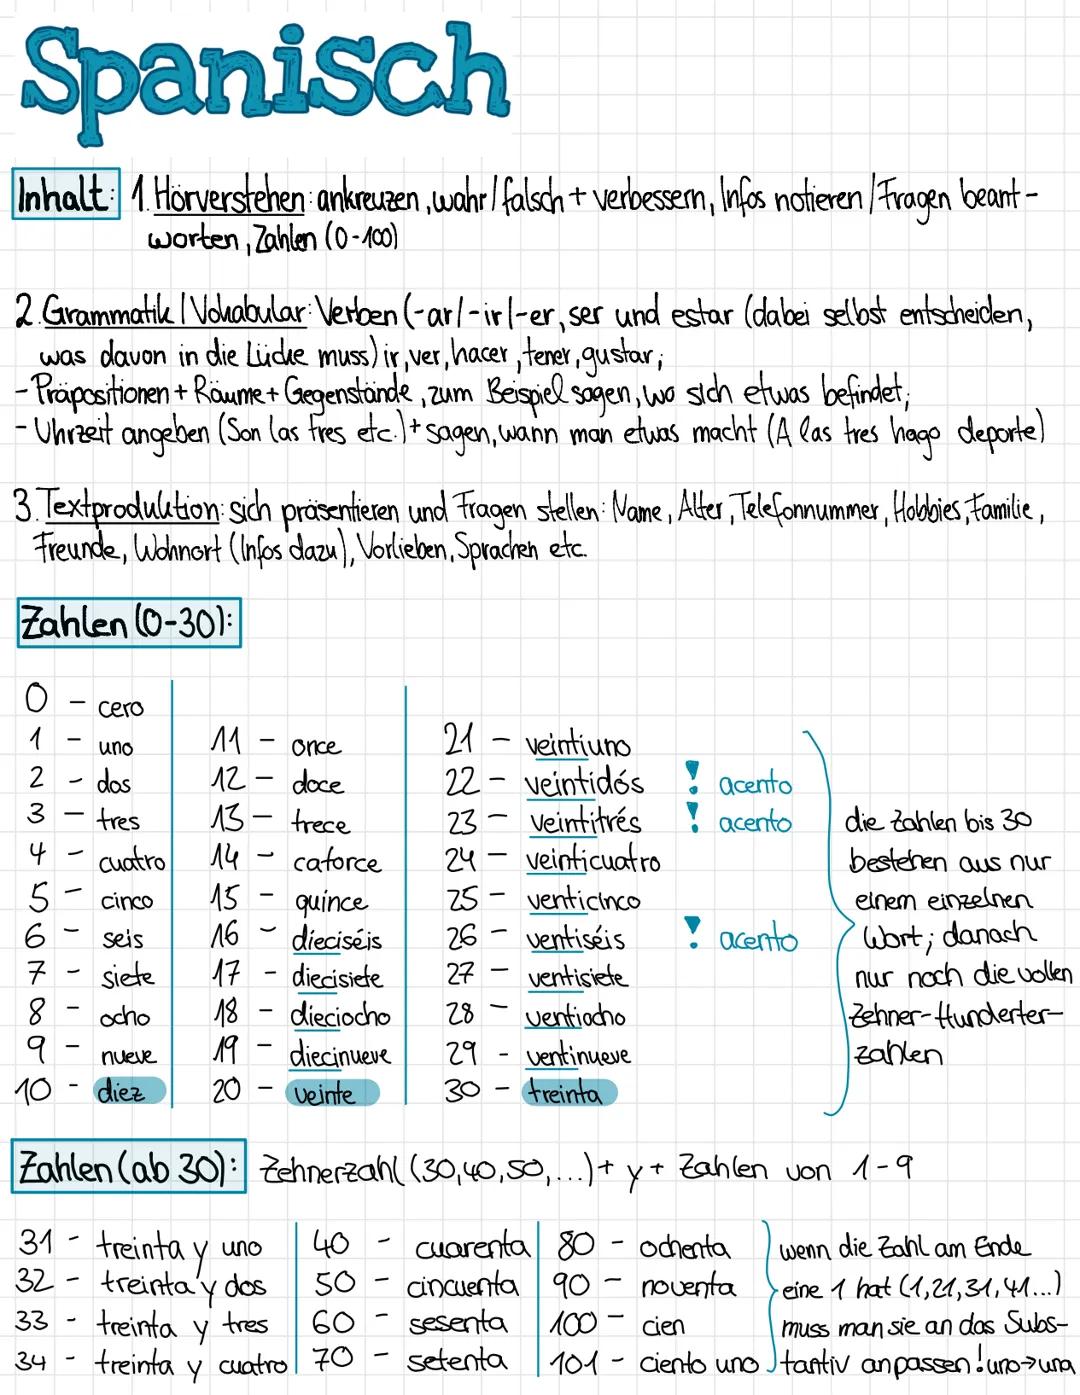 Spanisch
Inhalt: 1. Hörverstehen: ankreuzen, wahr/falsch + verbessern, Infos notieren/Fragen beant-
worten, Zahlen (0-100)
2. Grammatik/Vokabular: Verben (-ar/-ir/-er, ser und estar (dabei selbst entscheiden,
was davon in die Lücke muss) ir, ver, hacer, tener, gustar;
- Präpositionen + Räume + Gegenstände, zum Beispiel sagen, wo sich etwas befindet;
- Uhrzeit angeben (Son las tres etc.) + sagen, wann man etwas macht (A las tres hago deporte)
3. Textproduktion: sich präsentieren und Fragen stellen: Name, Alter, Telefonnummer, Hobbies, Familie,
Freunde, Wohnort (Infos dazu), Vorlieben, Sprachen etc.
Zahlen (0-30):
0 - cero
1 - uno
2 - dos
3 - tres
4 - cuatro
5 - cinco
6 - seis
7 - siete
8 - ocho
9 - nueve
10 - diez
11 - once
12 - doce
13 - trece
14 - catorce
15 - quince
16 - dieciséis
17 - diecisiete
18 - dieciocho
19 - diecinueve
20 - veinte
21 - veintiuno
22 - veintidós ! acento
23 - veintitrés ! acento
24 - veinticuatro
25 - venticinco
26 - ventiséis ! acento
27 - ventisiete
28 - ventiocho
29 - ventinueve
30 - treinta
die Zahlen bis 30
bestehen aus nur
einem einzelnen
Wort; danach
nur noch die vollen
Zehner-Hunderter-
zahlen
Zahlen (ab 30): Zehnerzahl (30,40,50,...) + y + Zahlen von 1-9
31 - treinta y uno
32 - treinta y dos
33 - treinta y tres
34 - treinta y cuatro
40 - cuarenta
50 - cincuenta
60 - sesenta
70 - setenta
80 - ochenta
90 - noventa
100 - cien
101 - ciento uno
wenn die Zahl am Ende
eine 1 hat (1,21,31,41...)
muss man sie an das Subs-
tantiv anpassen! uno→una